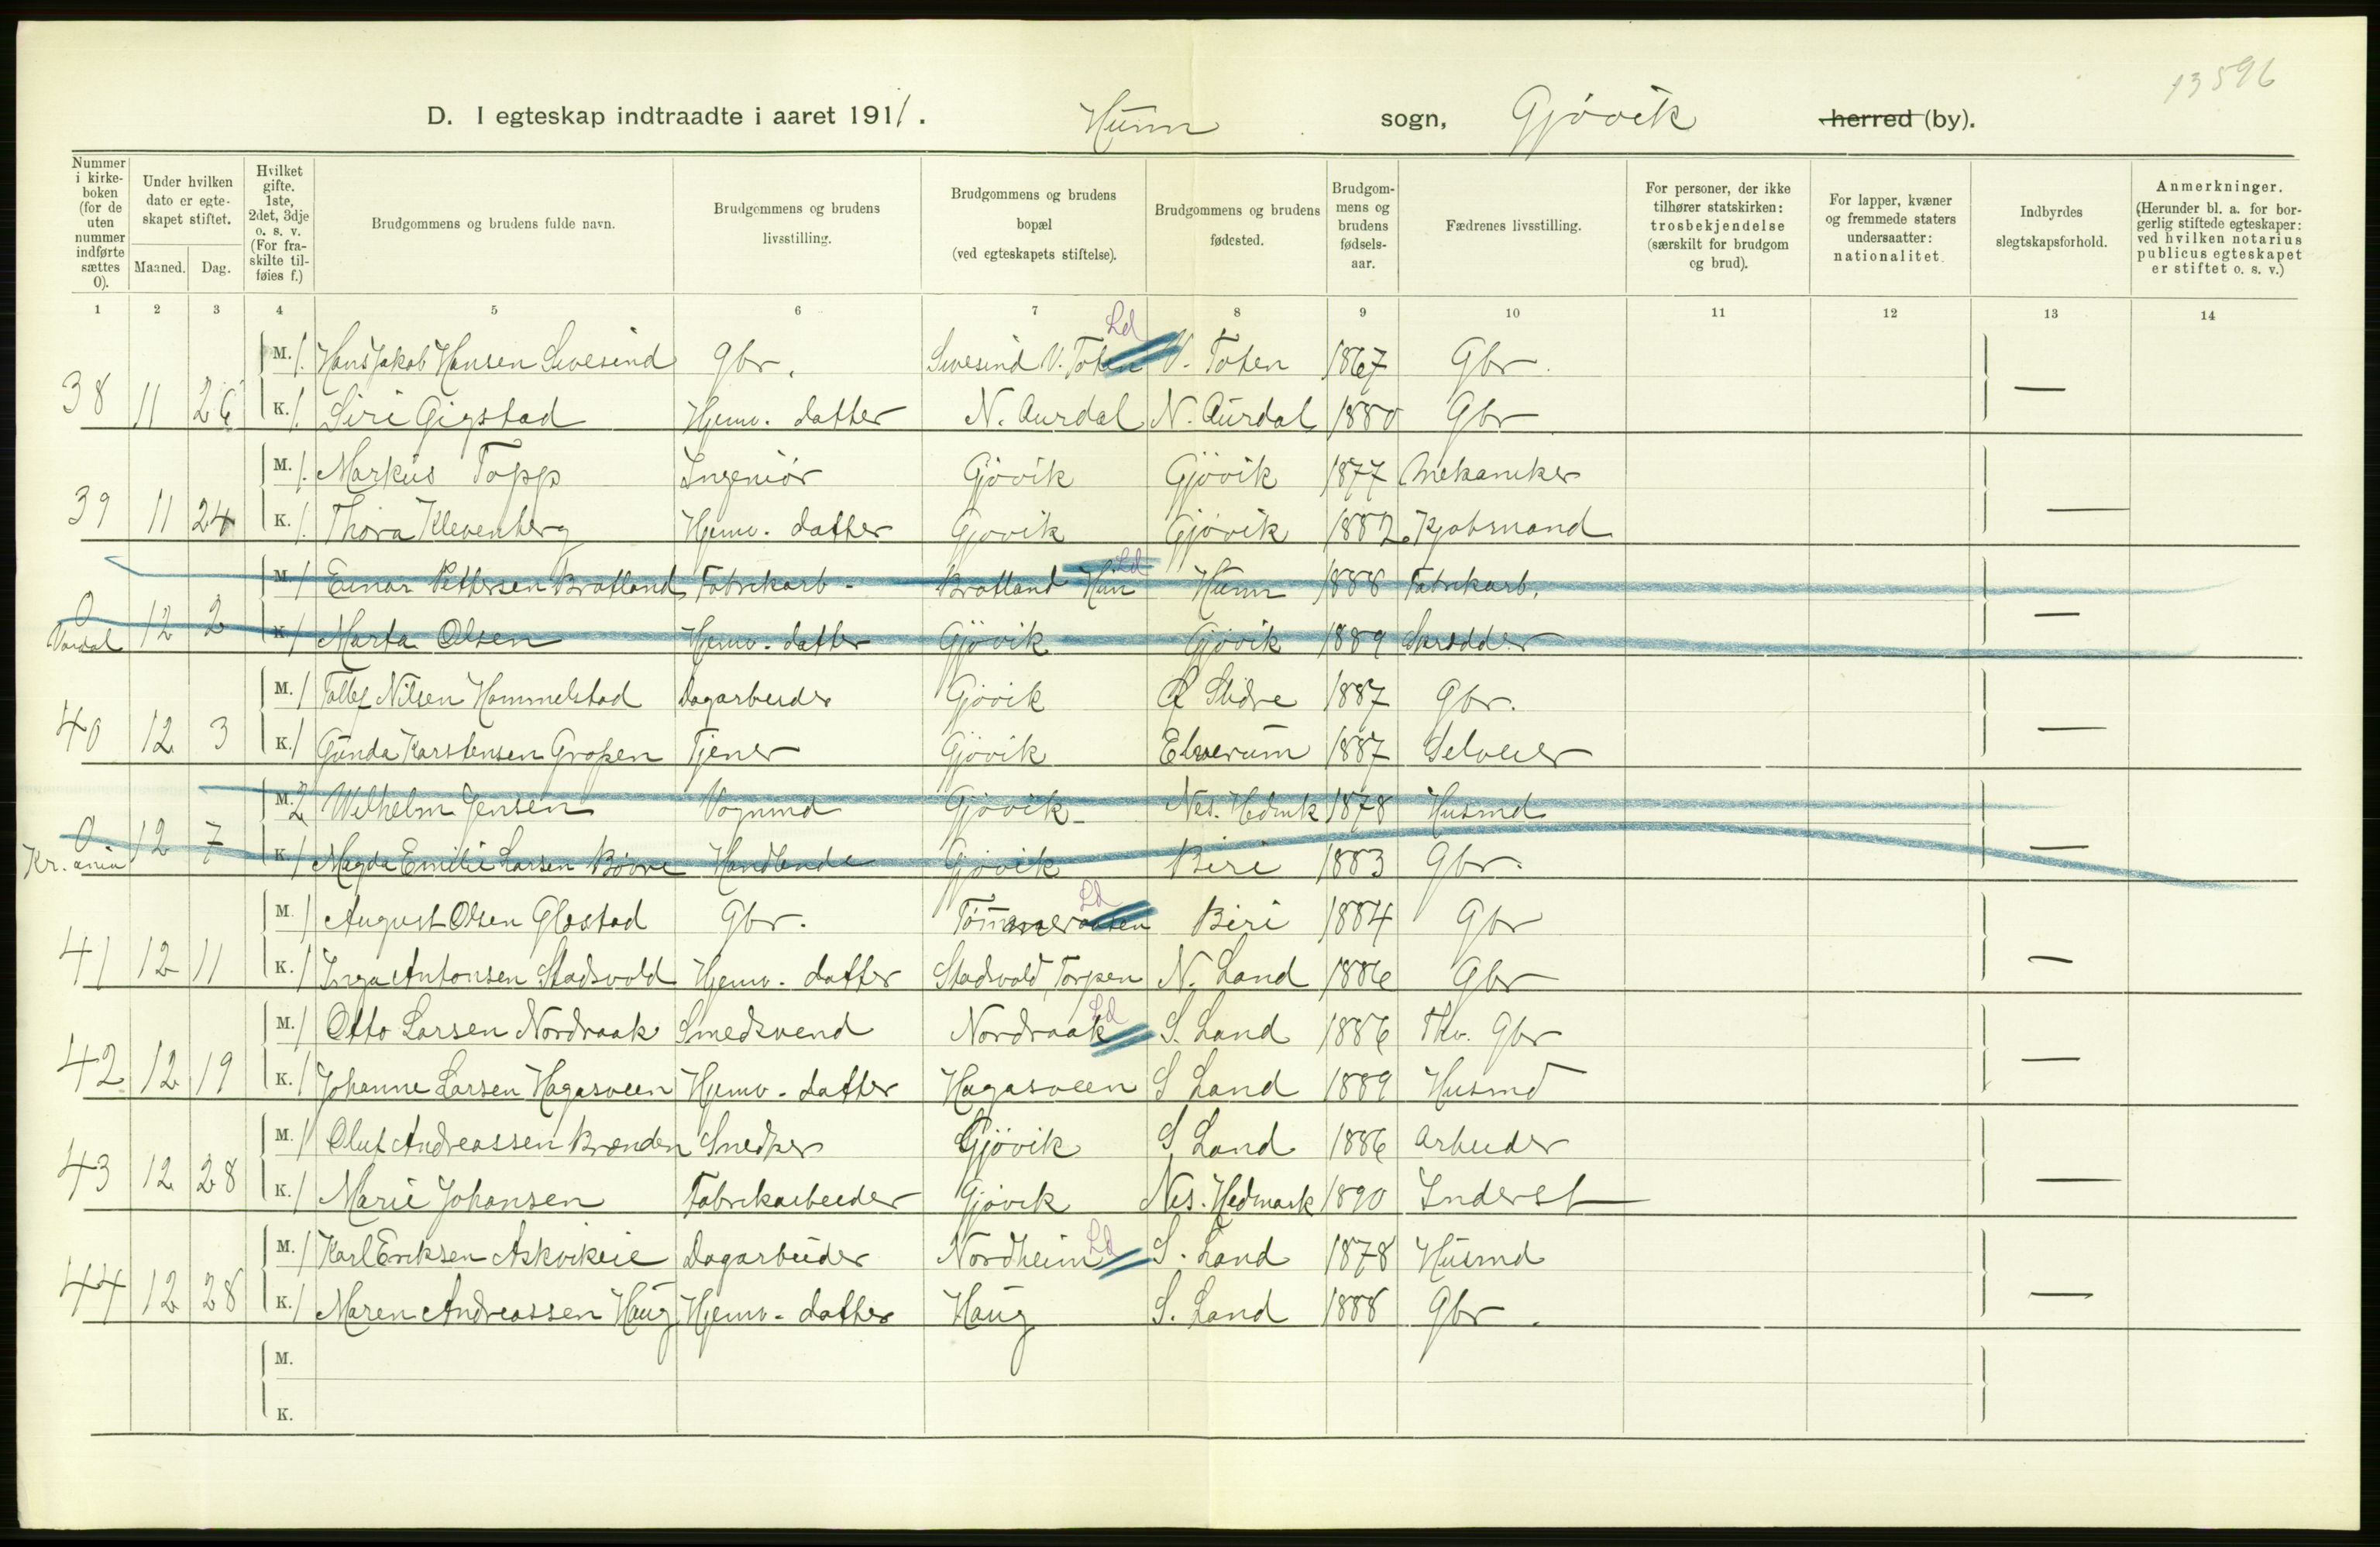 13596
D. I egteskap indtraadte i aaret 1911. Hunn sogn, Gjøvik herred (by).
Nummer i kirke-boken (for de uten nummer indførte sættes 0).
Under hvilken dato er egte-skapet stiftet.
Maaned. Dag.
Hvilket gifte. 1ste, 2det, 3dje o. s. v. (For fra-skilte til-føies f.)
Brudgommens og brudens fulde navn.
Brudgommens og brudens livsstilling.
Brudgommens og brudens bopæl (ved egteskapets stiftelse).
Brudgommens og brudens fødested.
Brudgom-mens og brudens fødsels-aar.
Fædrenes livsstilling.
For personer, der ikke tilhører statskirken: trosbekjendelse (særskilt for brudgom og brud).
For lapper, kvæner og fremmede staters undersaatter: nationalitet.
Indbyrdes slegtskapsforhold.
Anmerkninger. (Herunder bl. a. for bor-gerlig stiftede egteskaper: ved hvilken notarius publicus egteskapet er stiftet o. s. v.)
1 2 3 4 5 6 7 8 9 10 11 12 13 14
Ld
M. 1. Hans Jakob Hansen Sivesind Gbr. Sivesind V. Toten V. Toten 1867 Gbr.
38 11 26 K. 1. Siri Gigstad Hjemv. datter N. Aurdal N. Aurdal 1880 Gbr —
M. 1. Markus Topp Ingeniør Gjøvik Gjøvik 1877 Mekaniker
39 11 24 K. 1. Thora Klevenberg Hjemv. datter Gjøvik Gjøvik 1882 Kjøbmand —
Ld
M. 1 Einar Pettersen Bratland Fabrikarb. Bratland Hun Hunn 1888 Fabrikarb.
0 Vardal 12 2 K. 1 Marta Olsen Hjemv. datter Gjøvik Gjøvik 1889 Skrædder —
M. 1 Tollef Nilsen Hammelstad Dagarbeider Gjøvik Ø Slidre 1887 Gbr.
40 12 3 K. 1 Gunda Karstensen Gropen Tjener Gjøvik Elverum 1887 Selveier —
M. 2 Wilhelm Jensen Vognmd Gjøvik Nes. Hedmk 1878 Husmd
0 Kr.ania 12 7 K. 1 Magda Emilie Larsen Bøvre Handlende Gjøvik Biri 1883 Gbr. —
Ld
M. 1 August Olsen Gløstad Gbr. Biri 1884 Gbr
41 12 11 K. 1 Inga Antonsen Stadsvold Hjemv. datter Stadsvold, Torpen N. Land 1886 Gbr —
Ld
M. 1 Otto Larsen Nordraak Smedsvend Nordraak S. Land 1886 Fhv. Gbr
42 12 19 K. 1 Johanne Larsen Hagasveen Hjemv. datter Hagasveen S Land 1889 Husmd —
M. 1 Oluf Andreassen Brænden Snedker Gjøvik S Land 1886 Arbeider
43 12 28 K. 1 Marie Johansen Fabrikarbeider Gjøvik Nes. Hedmark 1890 Inderst —
Ld
M. 1 Karl Eriksen Askvikeie Dagarbeider Nordheim S. Land 1878 Husmd
44 12 28 K. 1 Maren Andreassen Haug Hjemv. datter Haug S. Land 1888 Gbr. —
M.
K.